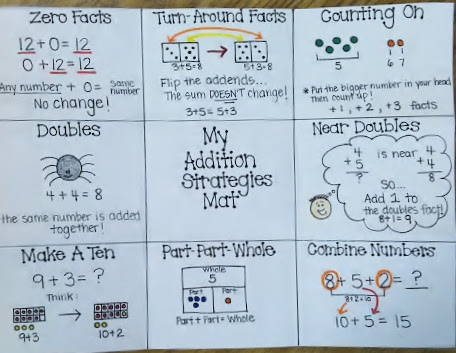 Zero Facts
12+0=12
0+12=12
Any number + 0 = same number
No change!
Turn-Around Facts
3+5=8
5+3=8
Flip the addends...
The sum DOESN'T change!
3+5=5+3
Counting On
5
6 7
* Put the bigger number in your head
then count up!
+1, +2, +3 facts
Doubles
4+4=8
the same number is added
together!
My
Addition
Strategies
Mat
Near Doubles
4
+5
?
is near
4
+4
8
So...
Add 1 to
the doubles fact!
8+1=9
Make A Ten
9+3=?
Think:
9+3
10+2
Part-Part-Whole
Whole
5
Part
Part
Part + Part = Whole
Combine Numbers
8+5+2=?
8+2=10
10+5=15